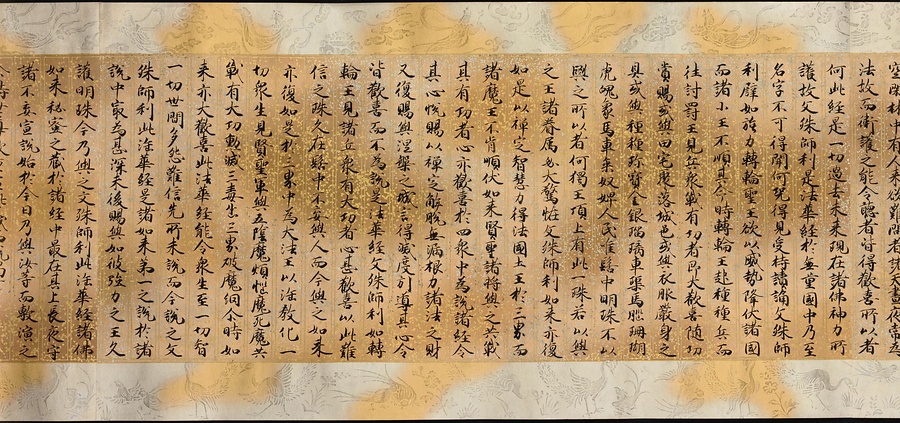 空閑林中有人来欲難問者諸天晝夜常為
法故而衛護之能令聽者皆得歡喜所以者
何此經是一切過去未来現在諸佛神力所
護故文殊師利是法華經於無量國中乃至
名字不可得聞何況得見受持讀誦文殊師
利譬如強力轉輪聖王欲以威勢降伏諸國
而諸小王不順其命時轉輪王起種種兵而
往討罰王見兵衆戰有功者即大歡喜随功
賞賜或與田宅聚落城邑或與衣服嚴身之
具或與種種珍寶金銀瑠璃車渠馬腦珊瑚
虎魄象馬車乗奴婢人民唯髻中明珠不以
與之所以者何獨王頂上有此一珠若以與
之王諸眷属必大驚恠文殊師利如来亦復
如是以禅定之智慧力得法國土王於三界而
諸魔王不肯順伏如来賢聖諸將與之共戰
其有功者心亦歡喜於四衆中為說諸經令
其心恱賜以禅定解脫無漏根力諸法之財
又復賜與涅槃之城言得滅度引導其心令
皆歡喜而不為說是法華經文殊師利如轉
輪王見諸兵衆有大功者心甚歡喜以此難
信之珠久在髻中不妄與人而今與之如来
亦復如是於三界中為大法王以法教化一
切衆生見賢聖軍與五陰魔煩惱魔死魔共
戰有大功勳滅三毒出三界破魔網尒時如
来亦大歡喜此法華經能令衆生至一切智
一切世間多怨難信先所未說而今說之文
殊師利此法華經是諸如来第一之說於諸
說中最為甚深末後賜與如彼強力之王久
護明珠今乃與之文殊師利此法華經諸佛
如来秘密之藏於諸經中最在其上長夜守
護不妄宣說始於今日乃與汝等而敷演之